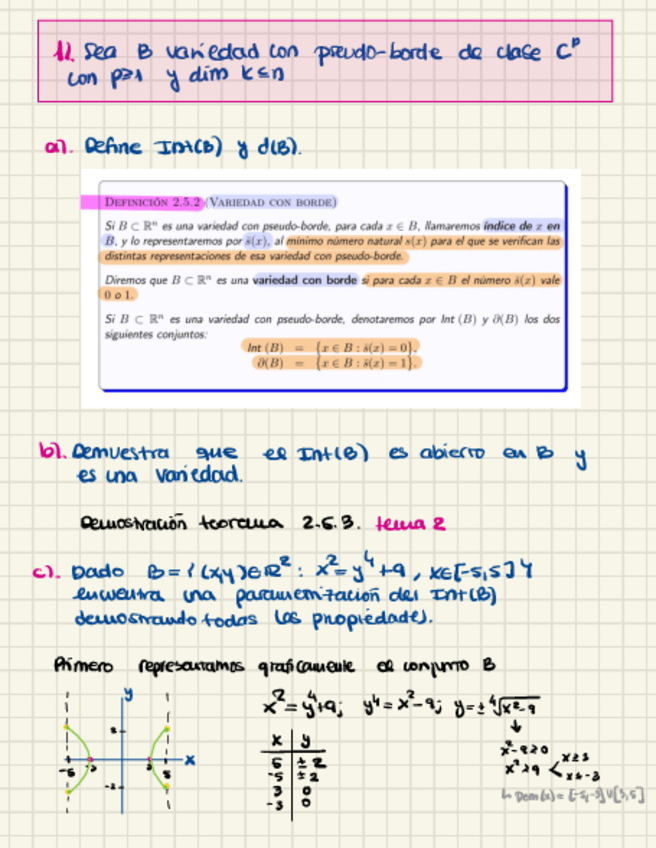 1). Sea B variedad con pseudo-borde de clase C^p
con p≥1 y dim k≤n
a). Define Int(B) y ∂(B).
DEFINICIÓN 2.5.2 (VARIEDAD CON BORDE)
Si B ⊂ ℝⁿ es una variedad con pseudo-borde, para cada x ∈ B, llamaremos índice de x en
B, y lo representaremos por s̄(x), al mínimo número natural s(x) para el que se verifican las
distintas representaciones de esa variedad con pseudo-borde.
Diremos que B ⊂ ℝⁿ es una variedad con borde si para cada x ∈ B el número s̄(x) vale
0 o 1.
Si B ⊂ ℝⁿ es una variedad con pseudo-borde, denotaremos por Int (B) y ∂(B) los dos
siguientes conjuntos:
Int (B) = {x ∈ B : s̄(x) = 0}.
∂(B) = {x ∈ B : s̄(x) = 1}.
b). Demuestra que el Int(B) es abierto en B y
es una variedad.
Demostración teorema 2.5.3. tema 2
c). Dado B = {(x,y)∈ℝ² : x² = y⁴+9, x∈[-5,5]}
encuentra una parametrización del Int(B)
demostrando todas las propiedades.
Primero representamos graficamente el conjunto B
y
x² = y⁴+9; y⁴ = x²-9; y = ± ⁴√x²-9
2
x y
x²-9≥0
x
5 ±2
x²≥9 x≥3
x≤-3
-5 -3 3 5
-5 ±2
-2
3 0
-3 0
↳ Dom(x) = [-5,-3]∪[3,5]